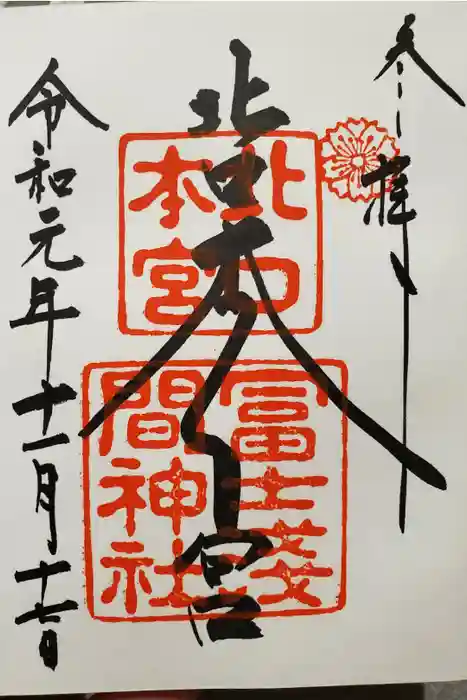 参拝
北口本宮
令和元年十一月十七日
北口
本宮
冨士淺
間神社